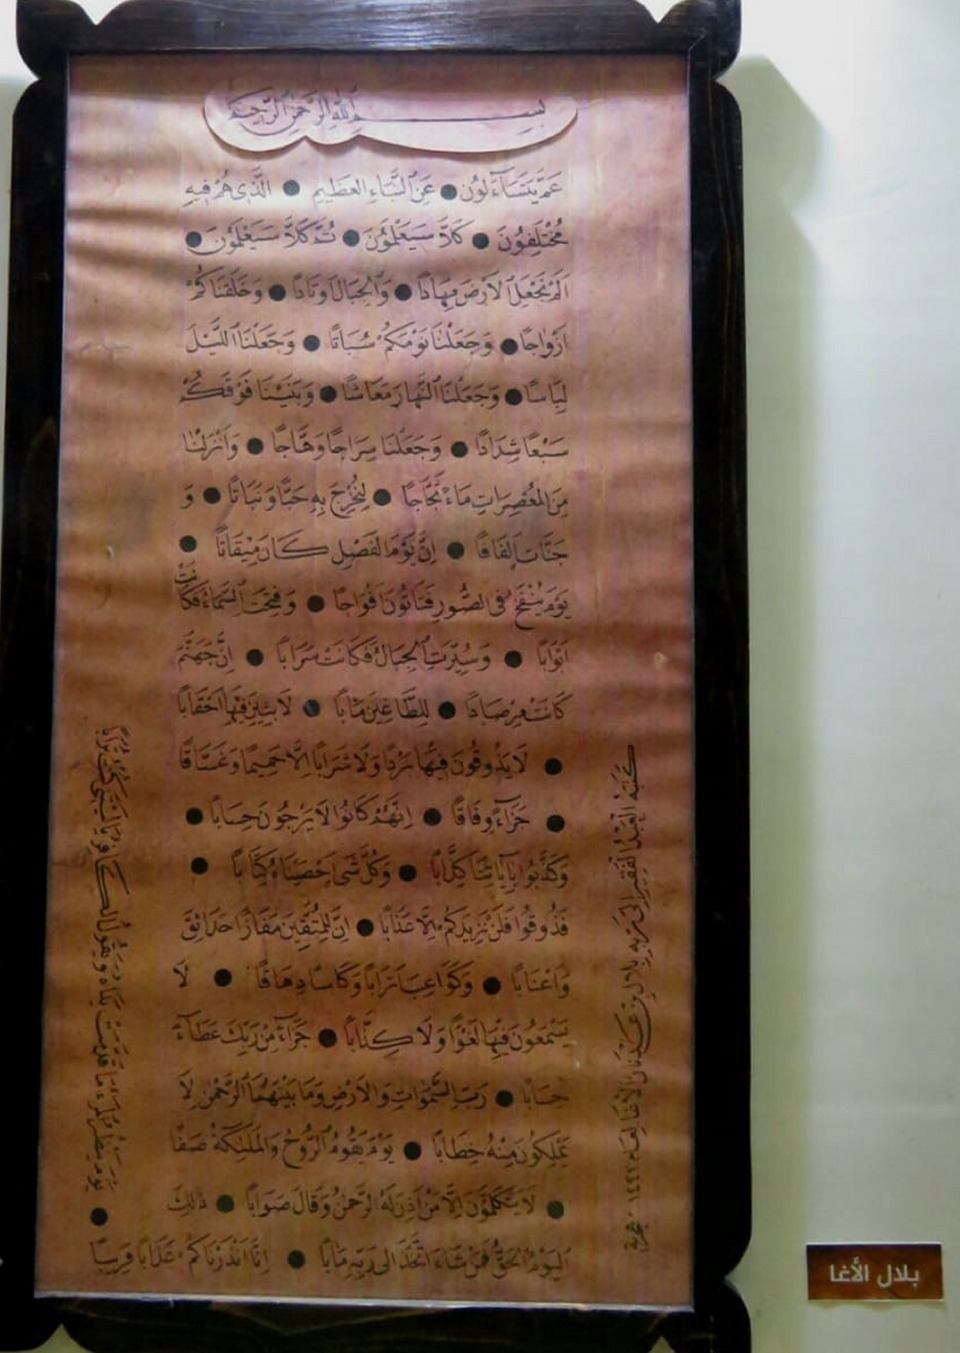 بسم الله الرحمن الرحيم
عَمَّ يَتَسَآءَلُونَ ● عَنِ ٱلنَّبَإِ العَظِيمِ ● الَّذِى هُمْ فِيهِ
مُخْتَلِفُونَ ● كَلَّا سَيَعْلَمُونَ ● ثُمَّ كَلَّا سَيَعْلَمُونَ ●
اَلَمْ نَجْعَلِ الاَرْضَ مِهَادًا ● وَٱلْجِبَالَ اَوْتَادًا ● وَخَلَقْنَاكُمْ
اَزْوَاجًا ● وَجَعَلْنَا نَوْمَكُمْ سُبَاتًا ● وَجَعَلْنَا ٱللَّيْلَ
لِبَاسًا ● وَجَعَلْنَا ٱلنَّهَارَ مَعَاشًا ● وَبَنَيْنَا فَوْقَكُمْ
سَبْعًا شِدَادًا ● وَجَعَلْنَا سِرَاجًا وَهَّاجًا ● وَاَنْزَلْنَا
مِنَ المُعْصِرَاتِ مَاءً ثَجَّاجًا ● لِنُخْرِجَ بِهِ حَبًّا وَنَبَاتًا ● وَ
جَنَّاتٍ اَلْفَافًا ● اِنَّ يَوْمَ الفَصْلِ كَانَ مِيْقَاتًا ●
يَوْمَ يُنْفَخُ فِى الصُّورِ فَتَأْتُونَ اَفْوَاجًا ● وَفُتِحَتِ السَّمَاءُ فَكَانَتْ
اَبْوَابًا ● وَسُيِّرَتِ الجِبَالُ فَكَانَتْ سَرَابًا ● اِنَّ جَهَنَّمَ
كَانَتْ مِرْصَادًا ● لِلطَّاغِينَ مَاٰبًا ● لَابِثِينَ فِيهَا اَحْقَابًا
● لَا يَذُوقُونَ فِيهَا بَرْدًا وَلَا شَرَابًا اِلَّا حَمِيمًا وَغَسَّاقًا
● جَزَآءً وِفَاقًا ● اِنَّهُمْ كَانُوا لَا يَرْجُونَ حِسَابًا ●
وَكَذَّبُوا بِاٰيَاتِنَا كِذَّابًا ● وَكُلَّ شَىْءٍ اَحْصَيْنَاهُ كِتَابًا ●
فَذُوقُوا فَلَنْ نَزِيدَكُمْ اِلَّا عَذَابًا ● اِنَّ لِلْمُتَّقِينَ مَفَازًا حَدَائِقَ
وَاَعْنَابًا ● وَكَوَاعِبَ اَتْرَابًا وَكَاْسًا دِهَاقًا ● لَا
يَسْمَعُونَ فِيهَا لَغْوًا وَلَا كِذَّابًا ● جَزَآءً مِنْ رَبِّكَ عَطَآءً
حِسَابًا ● رَبِّ السَّمٰوَاتِ وَالاَرْضِ وَمَا بَيْنَهُمَا ٱلرَّحْمٰنِ لَا
يَمْلِكُونَ مِنْهُ خِطَابًا ● يَوْمَ يَقُومُ الرُّوحُ وَالمَلٰئِكَةُ صَفًّا
● لَا يَتَكَلَّمُونَ اِلَّا مَنْ اَذِنَ لَهُ الرَّحْمٰنُ وَقَالَ صَوَابًا ● ذٰلِكَ
اليَوْمُ الحَقُّ فَمَنْ شَاءَ اتَّخَذَ اِلَى رَبِّهِ مَاٰبًا ● اِنَّا اَنْذَرْنَاكُمْ عَذَابًا قَرِيبًا
يَوْمَ يَنْظُرُ المَرْءُ مَا قَدَّمَتْ يَدَاهُ وَيَقُولُ الكَافِرُ يَا لَيْتَنِى كُنْتُ تُرَابًا ●
كَتَبَهُ العَبْدُ الفَقِيرُ اِلَى رَبِّهِ بِلَالُ بْنُ عَدْنَانَ الاَغَا لِعَام ١٤٤٢ هجرية
بلال الأغا